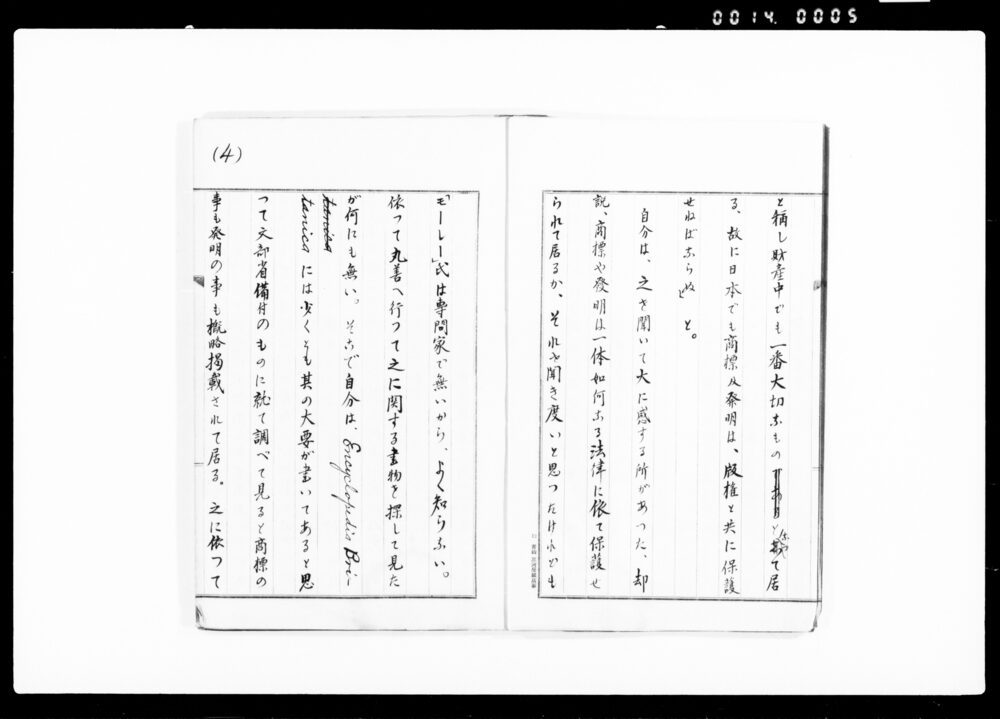 0014 0005
と稱し財產中でも一番大切なものと其て居
る、故に日本でも商標及發明は、版権と共に保護
せねばならぬと。
自分は、之を聞いて大に感する所があつた、却
説、商標や發明は一体如何なる法律に依て保護せ
られて居るか、それを聞き度いと思つたけれども
(4)
「モーレー」氏は専問家で無いから、よく知らない。
依つて丸善へ行つて之に関する書物を探して見た
が何にも無い。そこで自分は、Encyclopedia Bri-
tanica には少くとも其の大要が書いてあると思
つて文部省備付のものに就て調べて見ると商標の
事も発明の事も概略掲載されて居る。之に依つて